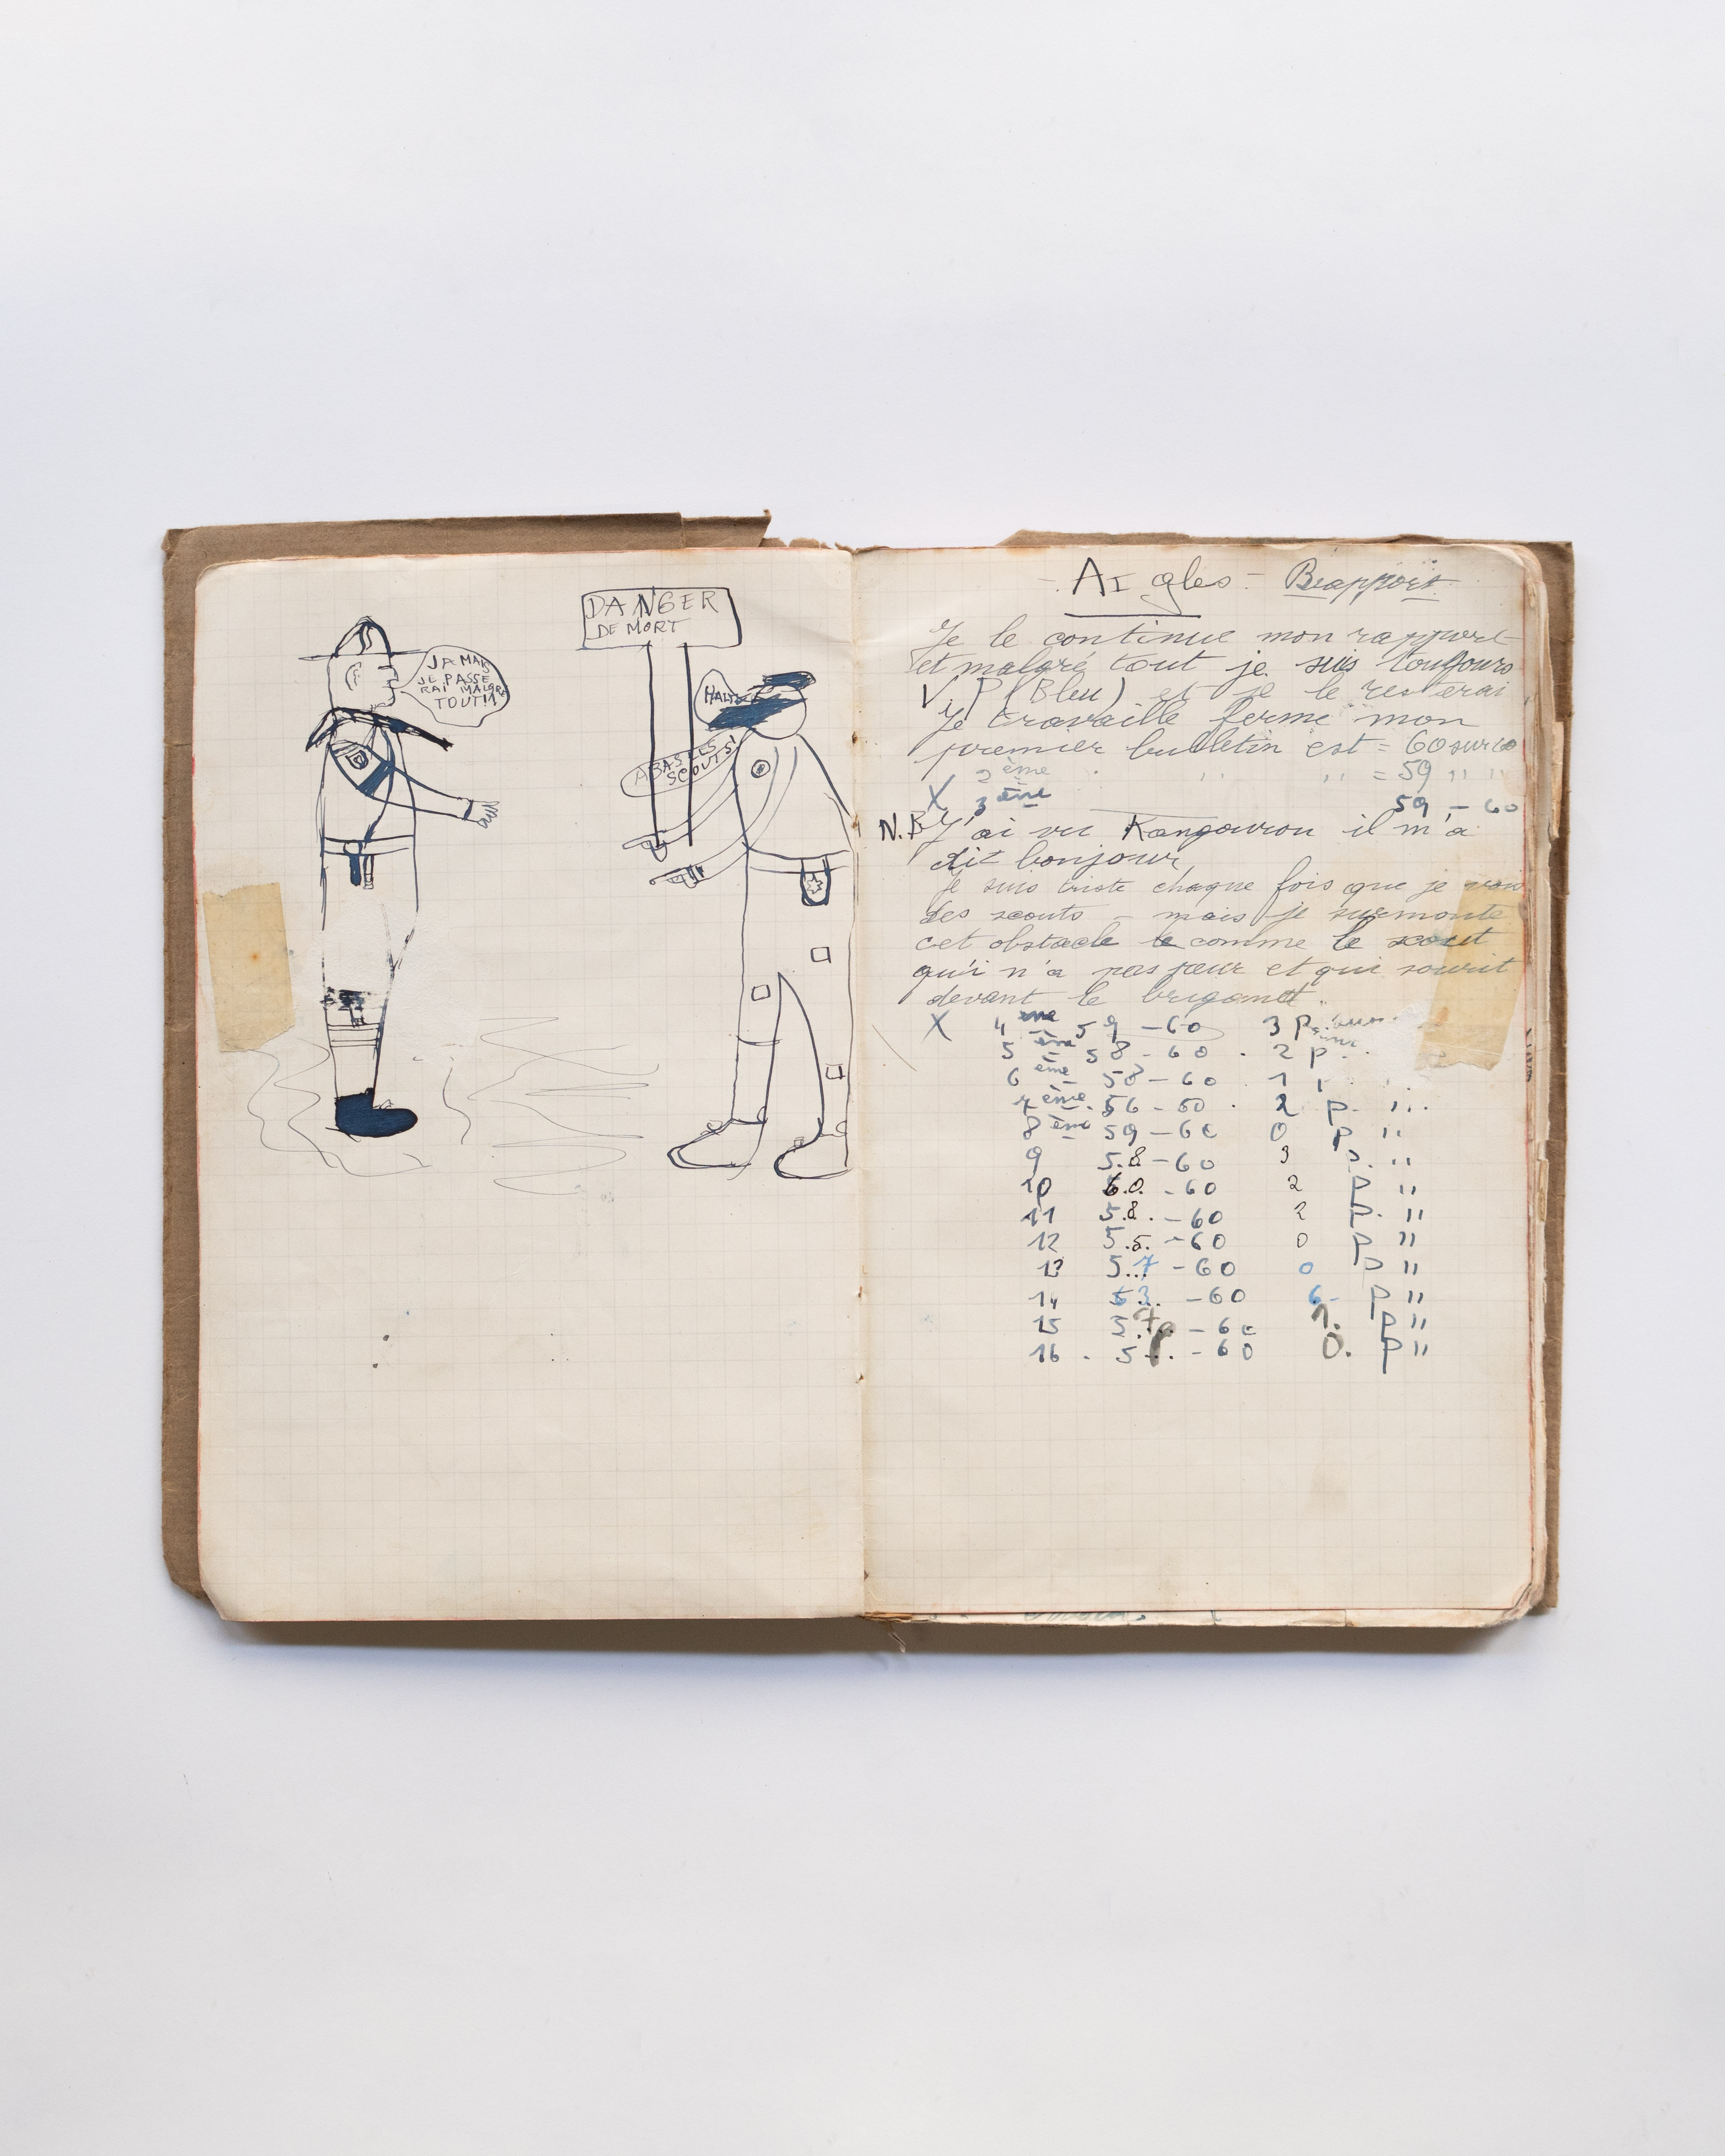 JAMAIS
JE PASSE
RAI MALGRE
TOUT!!
DANGER
DE MORT
HALTE
A BAS LES
SCOUTS!
- AIgles - Rapport
Je le continue mon rapport
et malgré tout je suis toujours
V.P (Bleu) et je le resterai
Je travaille ferme mon
premier bulletin est = 60 sur 60
2ème " " = 59 " "
X 3ème 59 - 60
N.B J'ai vu Kangourou il m'a
dit bonjour
Je suis triste chaque fois que je vois
des scouts - mais je surmonte
cet obstacle comme le scout
qui n'a pas peur et qui sourit
devant le brigand.
X 4ème 59 - 60 3 p.
5ème 58 - 60 . 2 p.
6ème 58 - 60 . 1
7ème . 56 - 60 . 2 p. "
8ème 59 - 60 0 p "
9 5.8 - 60 3 p. "
10 6.0. - 60 2 p "
11 5.8. - 60 2 p. "
12 5.5. - 60 0 p "
13 5.7 - 60 0 p "
14 53. - 60 6 p "
15 5.7. - 60 1. p "
16 . 5 - 60 0. p "